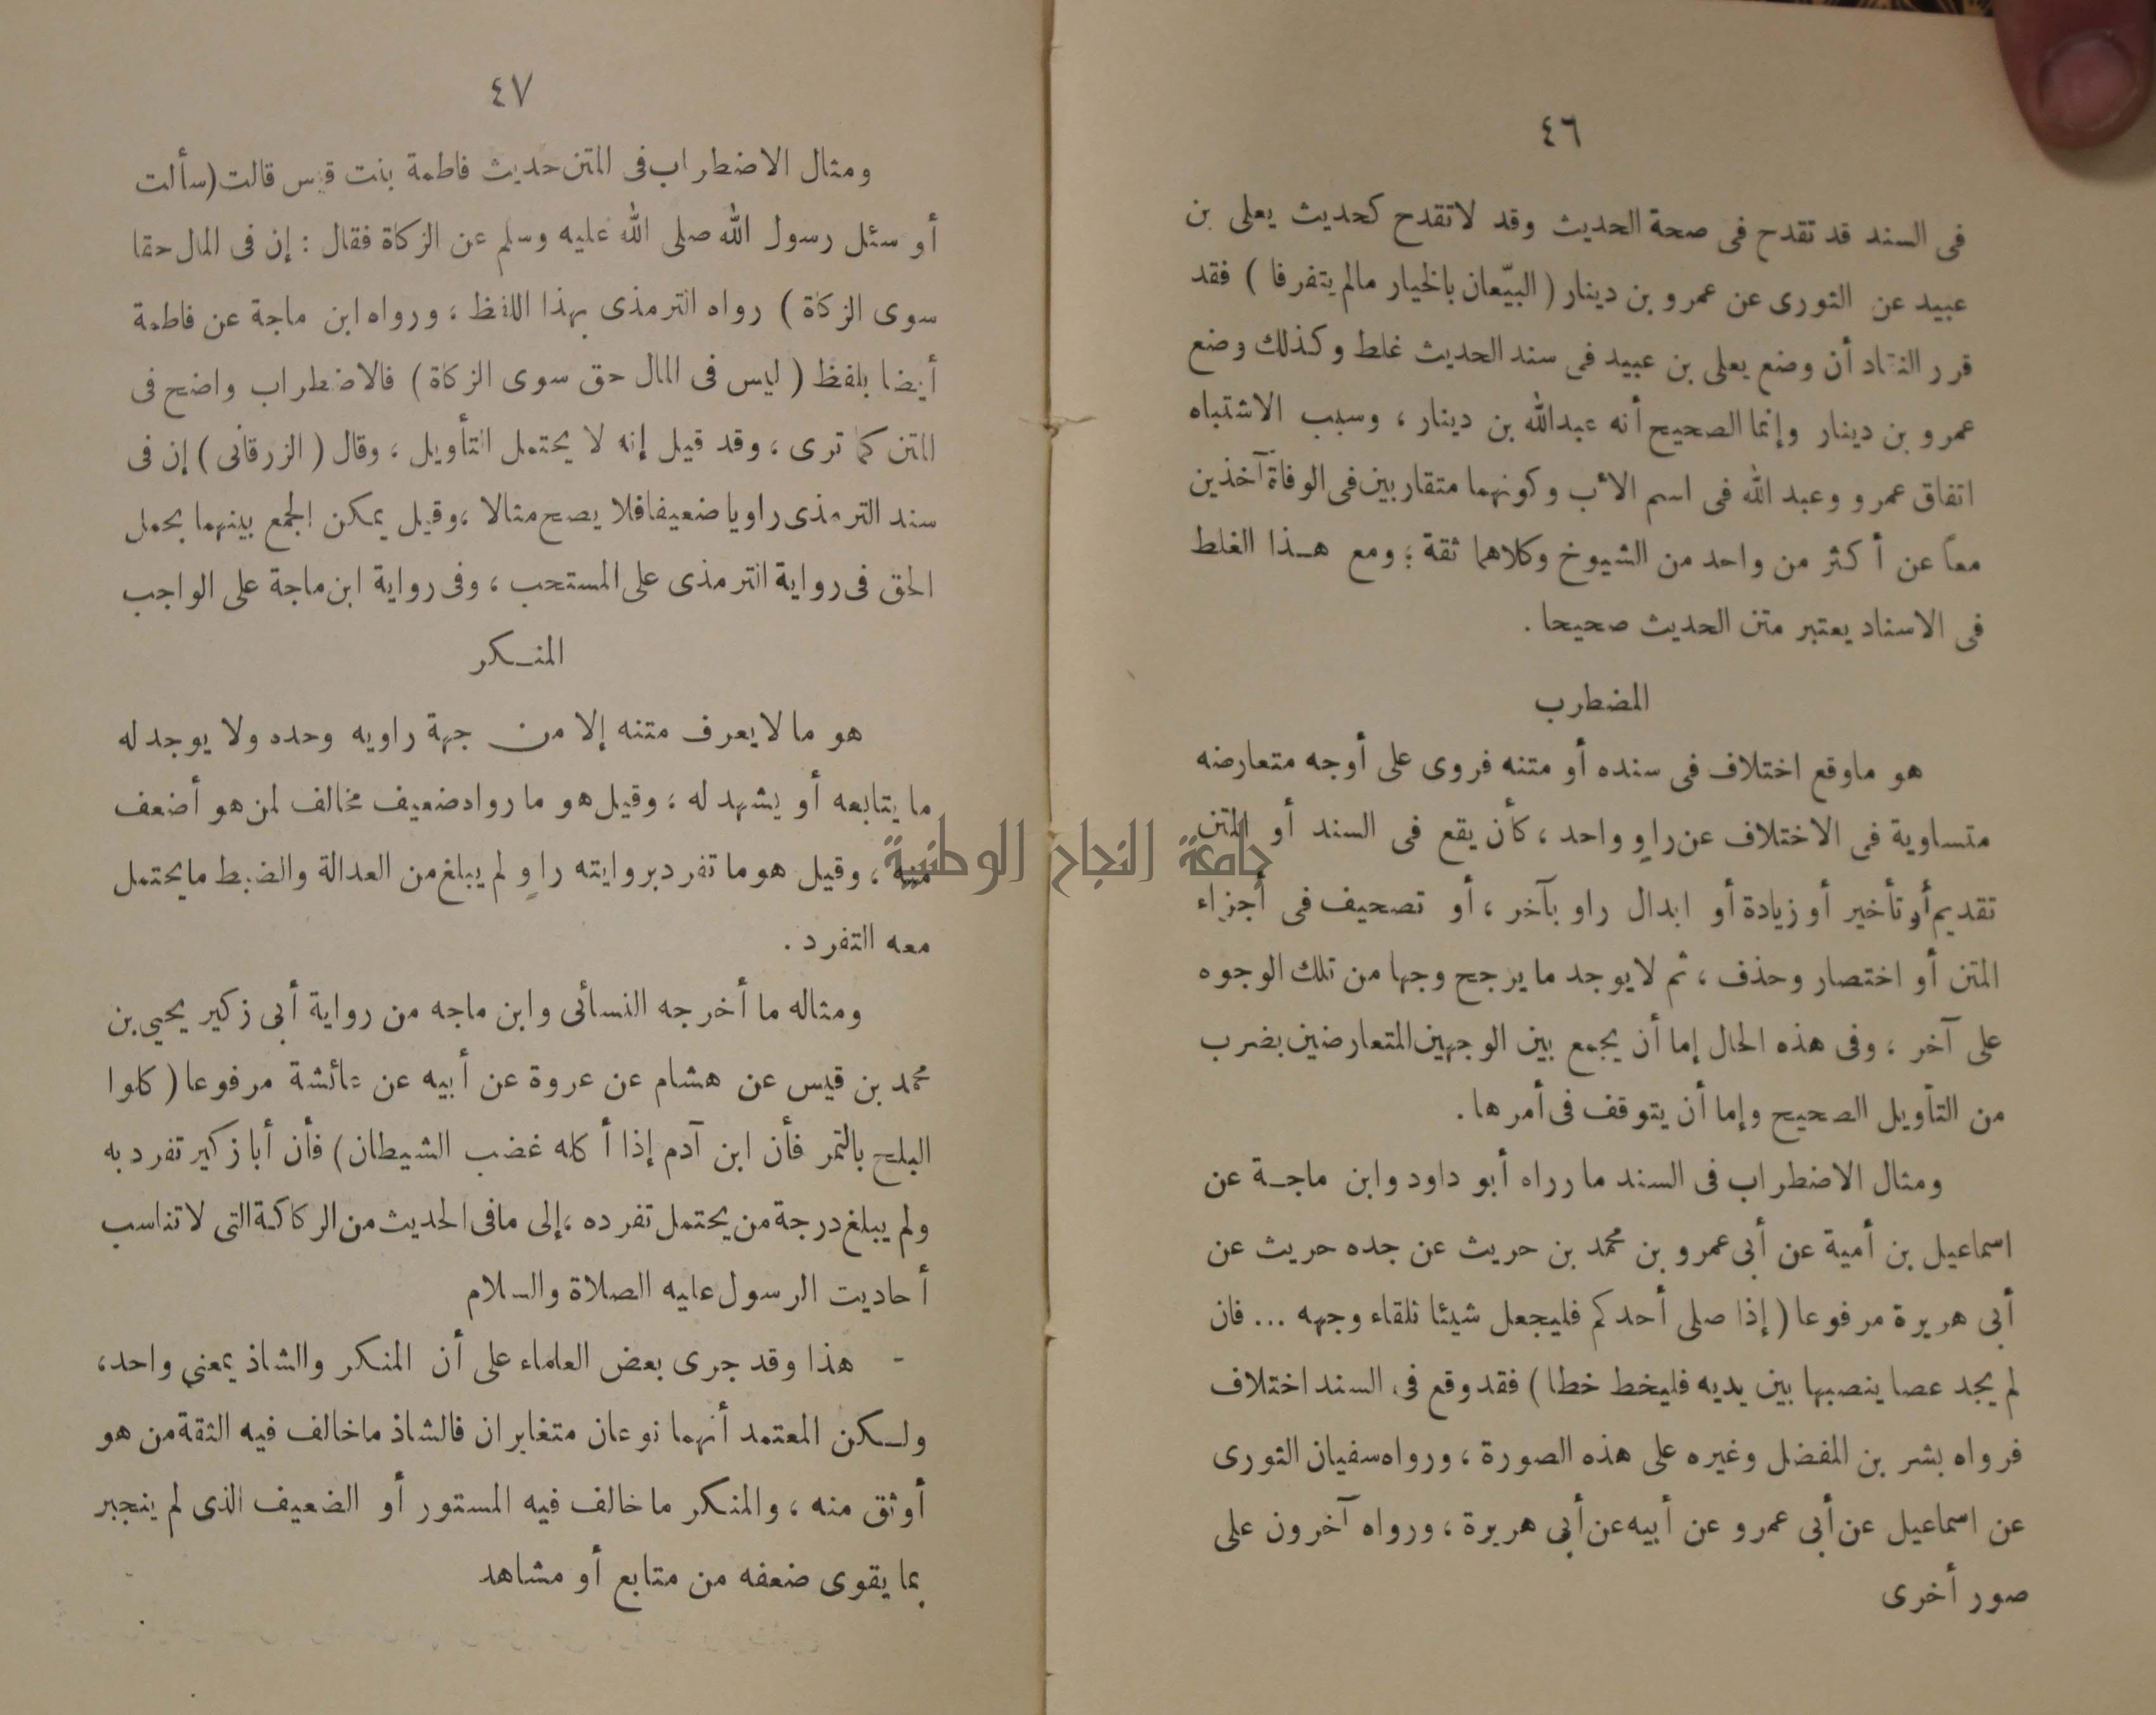 ٤٦
فى السند قد تقدح فى صحة الحديث وقد لا تقدح كحديث يعلى بن
عبيد عن الثورى عن عمرو بن دينار ( البيّعان بالخيار مالم يتفرقا ) فقد
قرر النقاد أن وضع يعلى بن عبيد فى سند الحديث غلط وكذلك وضع
عمرو بن دينار وإنما الصحيح أنه عبدالله بن دينار ، وسبب الاشتباه
اتفاق عمرو وعبد الله فى اسم الأب وكونهما متقاربين فى الوفاة آخذين
معاً عن أكثر من واحد من الشيوخ وكلاهما ثقة ؛ ومع هـذا الغلط
فى الاسناد يعتبر متن الحديث صحيحا .
المضطرب
هو ماوقع اختلاف فى سنده أو متنه فروى على أوجه متعارضه
متساوية فى الاختلاف عن راوٍ واحد ، كأن يقع فى السند أو المتن
تقديم أو تأخير أو زيادة أو ابدال راو بآخر ، أو تصحيف فى أجزاء
المتن أو اختصار وحذف ، ثم لا يوجد ما يرجح وجها من تلك الوجوه
على آخر ، وفى هذه الحال إما أن يجمع بين الوجهين المتعارضين بضرب
من التأويل الصحيح وإما أن يتوقف فى أمرها .
ومثال الاضطراب فى السند ما رراه أبو داود وابن ماجـة عن
اسماعيل بن أمية عن أبى عمرو بن محمد بن حريث عن جده حريث عن
أبى هريرة مرفوعا ( إذا صلى أحدكم فليجعل شيئا تلقاء وجهه ... فان
لم يجد عصا ينصبها بين يديه فليخط خطا ) فقد وقع فى السند اختلاف
فرواه بشر بن المفضل وغيره على هذه الصورة ، ورواه سفيان الثورى
عن اسماعيل عن أبى عمرو عن أبيه عن أبى هريرة ، ورواه آخرون على
صور أخرى
٤٧
ومثال الاضطراب فى المتن حديث فاطمة بنت قيس قالت (سألت
أو سئل رسول الله صلى الله عليه وسلم عن الزكاة فقال : إن فى المال حقا
سوى الزكاة ) رواه الترمذى بهذا اللفظ ، ورواه ابن ماجة عن فاطمة
أيضا بلفظ ( ليس فى المال حق سوى الزكاة ) فالاضطراب واضح فى
المتن كما ترى ، وقد قيل إنه لا يحتمل التأويل ، وقال ( الزرقانى ) إن فى
سند الترمذى راويا ضعيفا فلا يصح مثالا ، وقيل يمكن الجمع بينهما بحمل
الحق فى رواية الترمذى على المستحب ، وفى رواية ابن ماجة على الواجب
المنـكر
هو ما لا يعرف متنه إلا من جهة راويه وحده ولا يوجد له
ما يتابعه أو يشهد له ؛ وقيل هو ما رواه ضعيف مخالف لمن هو أضعف
منه ، وقيل هو ما تفرد بروايته راوٍ لم يبلغ من العدالة والضبط ما يحتمل
معه التفرد .
ومثاله ما أخرجه النسائى وابن ماجه من رواية أبى زكير يحيى بن
محمد بن قيس عن هشام عن عروة عن أبيه عن عائشة مرفوعا ( كلوا
البلح بالتمر فأن ابن آدم إذا أكله غضب الشيطان ) فأن أبا زكير تفرد به
ولم يبلغ درجة من يحتمل تفرده ، إلى مافى الحديث من الركاكة التى لا تناسب
أحاديت الرسول عليه الصلاة والسلام
- هذا وقد جرى بعض العلماء على أن المنكر والشاذ بمعنى واحد ،
ولـكن المعتمد أنهما نوعان متغايران فالشاذ ماخالف فيه الثقة من هو
أوثق منه ، والمنكر ما خالف فيه المستور أو الضعيف الذى لم ينجبر
بما يقوى ضعفه من متابع أو مشاهد
جامعة النجاح الوطنية